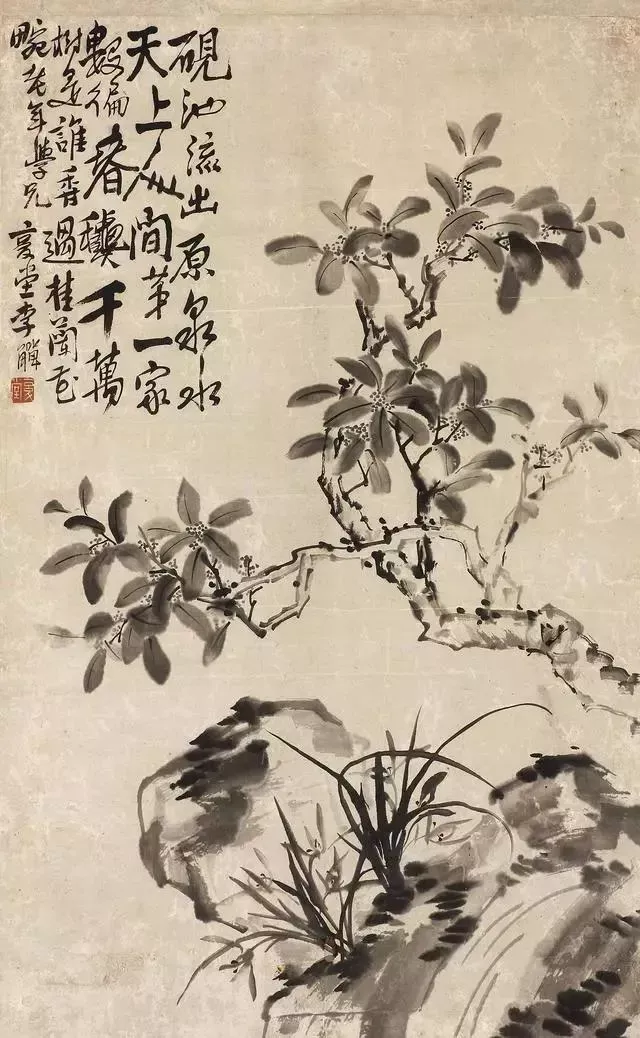 硯池流出原泉水
天上人間第一家
數徧春穠千萬
樹是誰香過桂蘭花
畹老年學兄 復堂李鱓